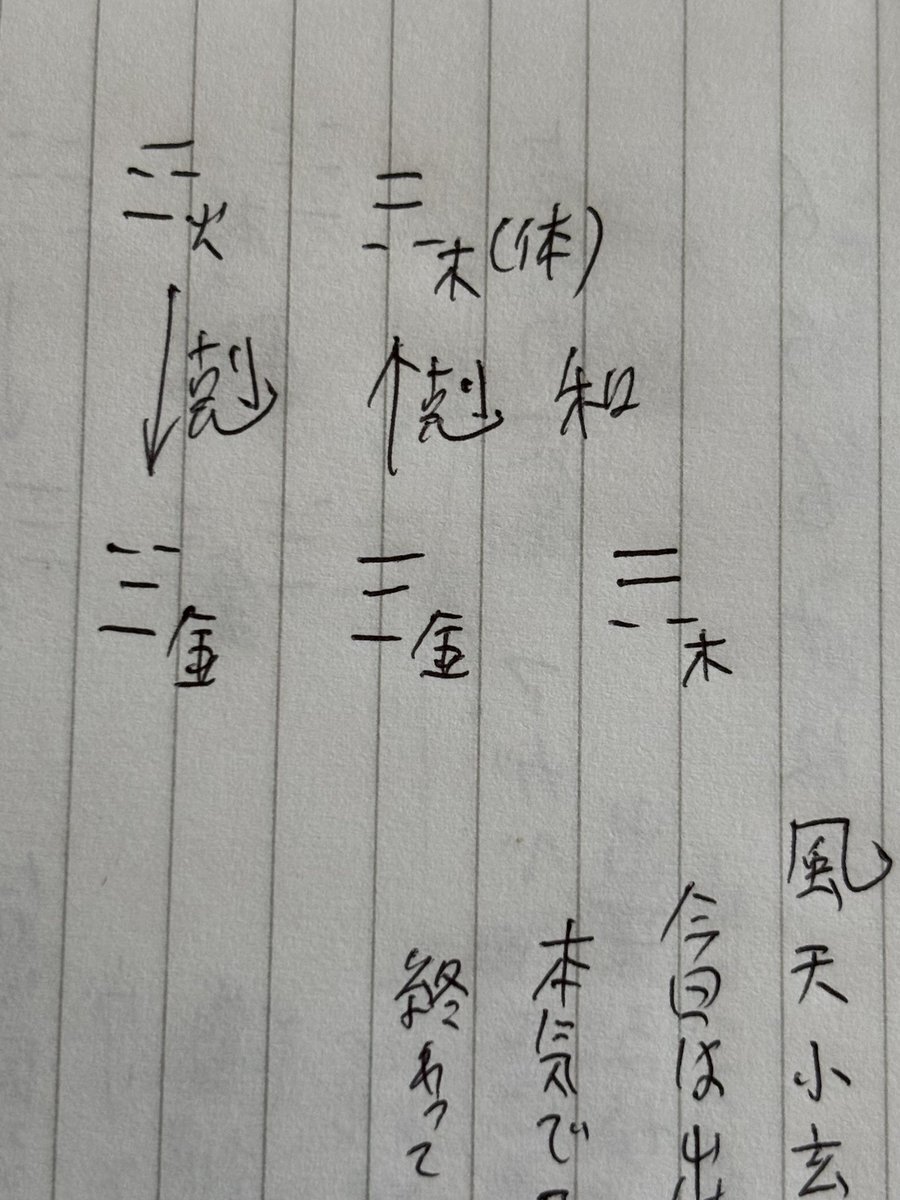 ☲火 ☴木(体)
↓剋 ↑剋 和
☱金 ☰金 ☴木
風天小玄
今回は出
本気で
終わって